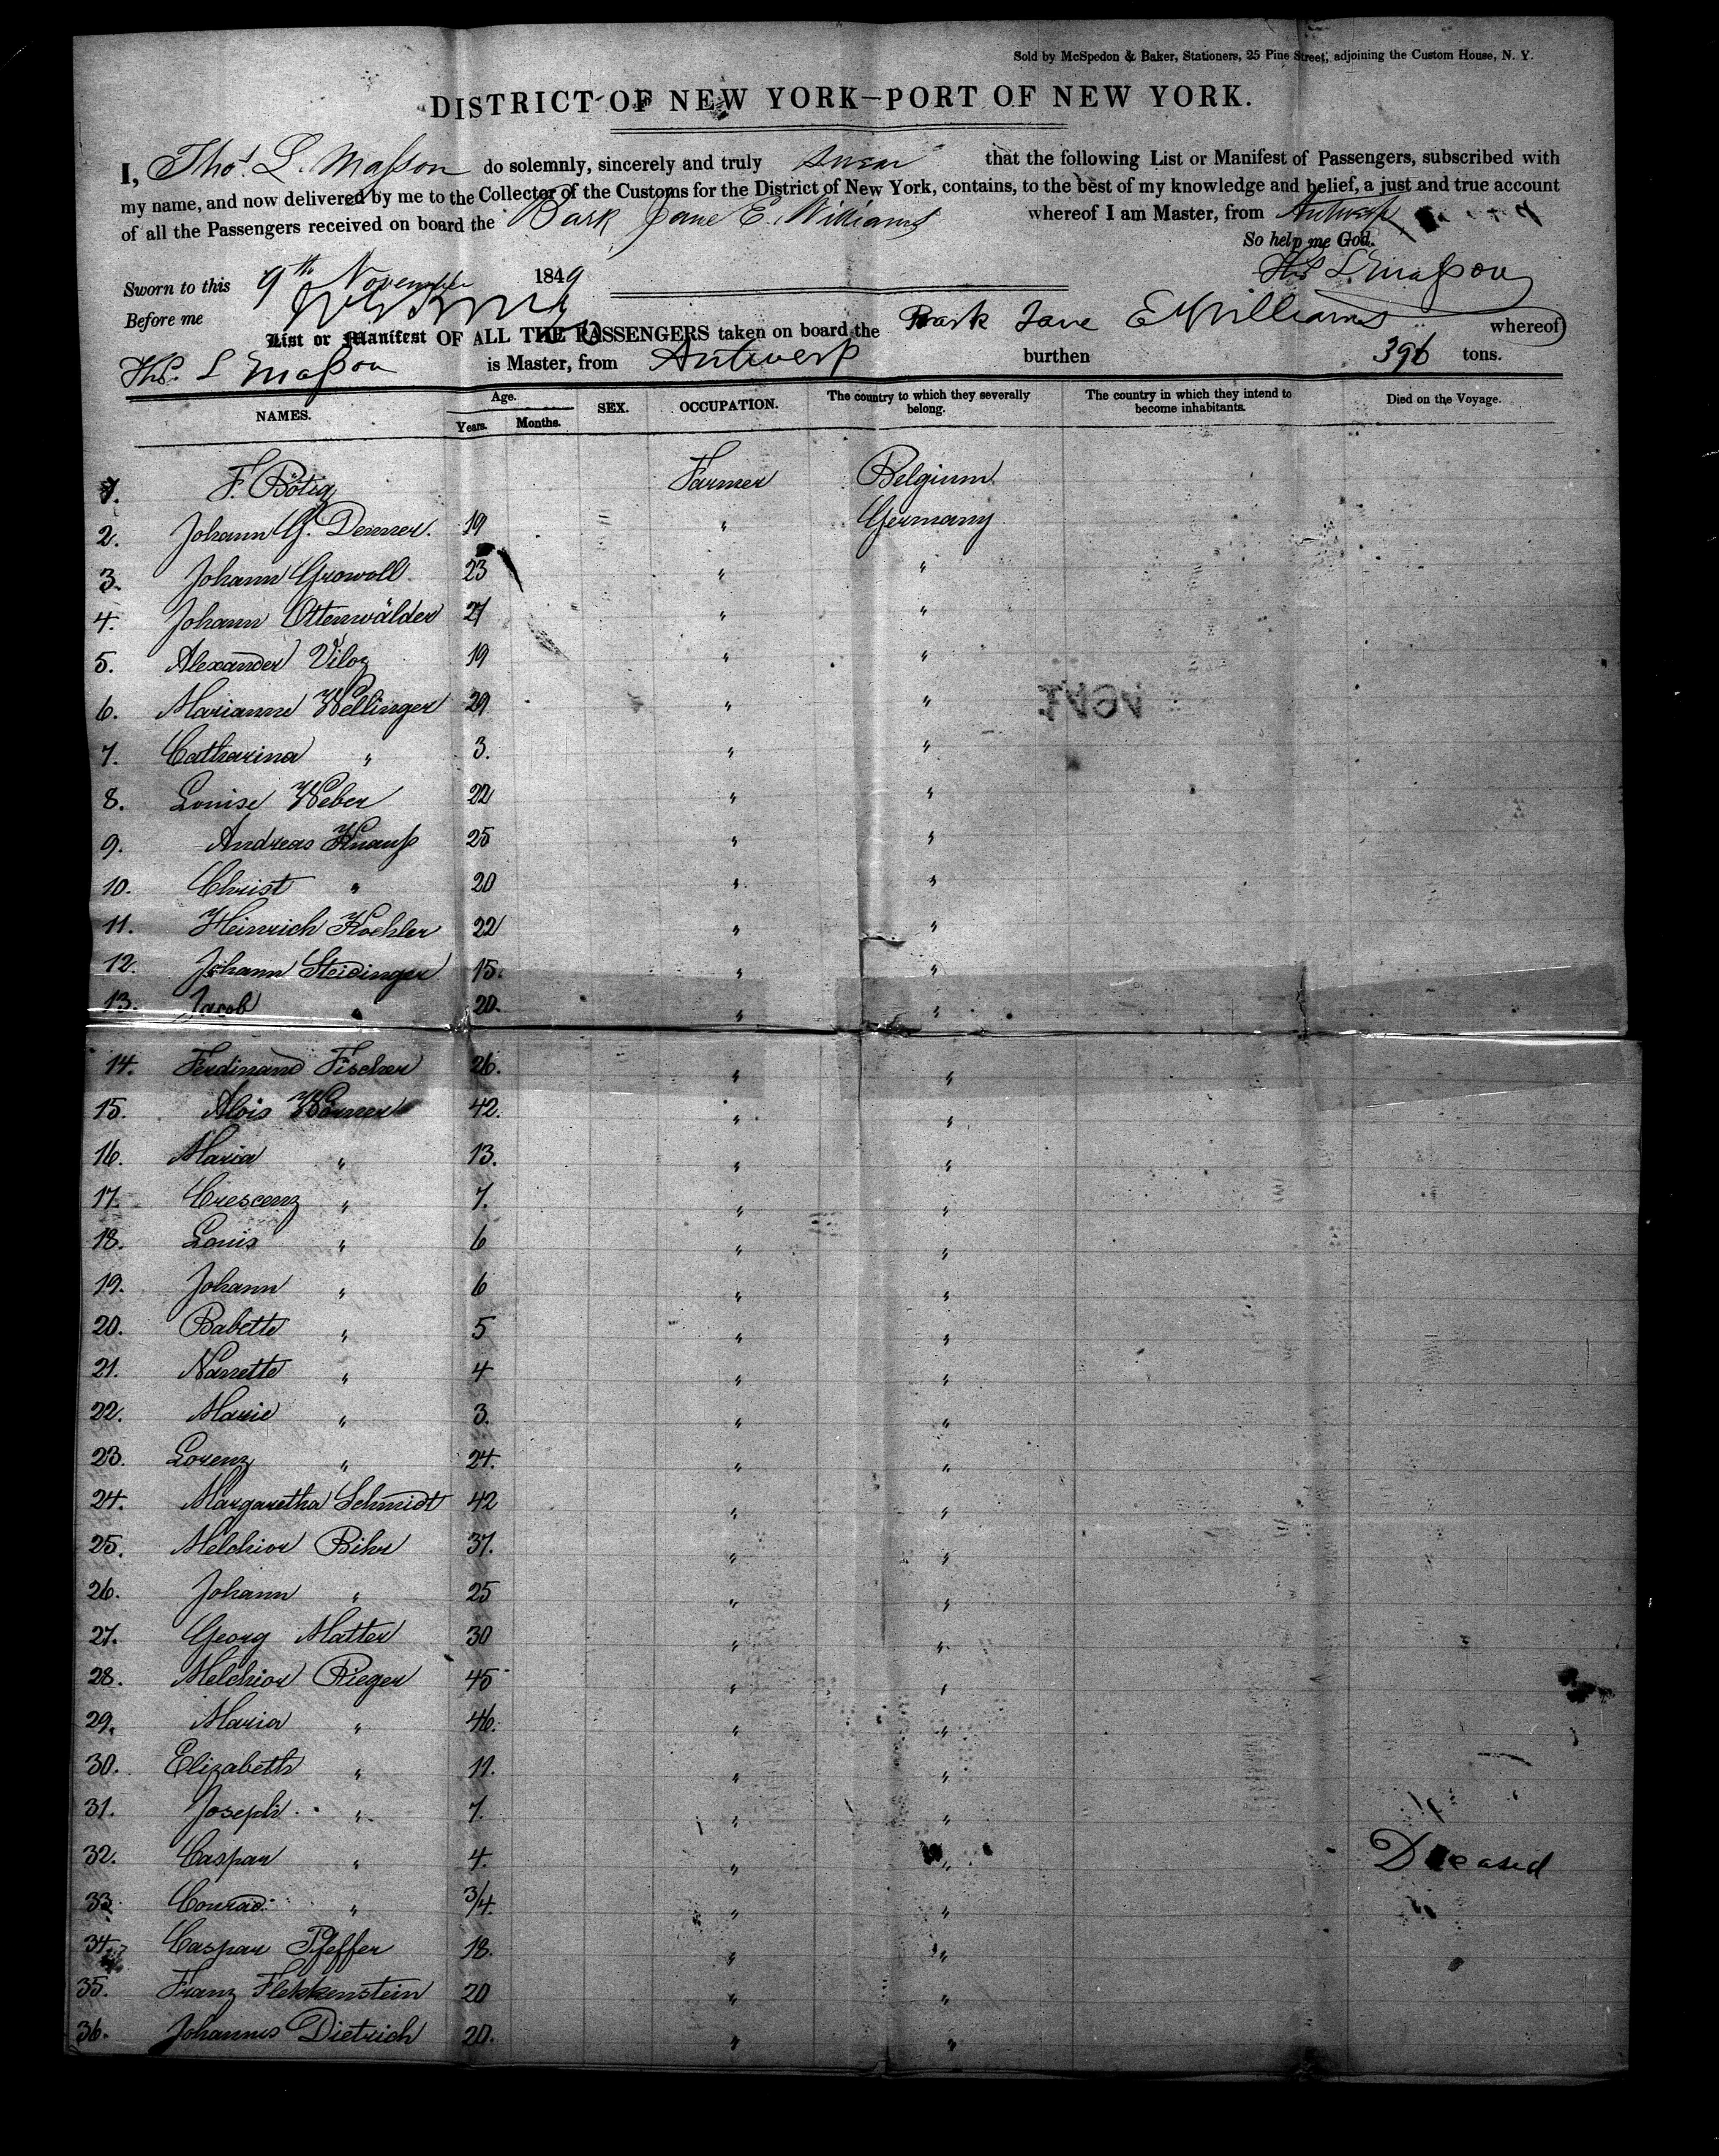 Sold by McSpedon & Baker, Stationers, 25 Pine Street, adjoining the Custom House, N. Y.
DISTRICT OF NEW YORK—PORT OF NEW YORK.
I, Thos. L. Masson do solemnly, sincerely and truly swear that the following List or Manifest of Passengers, subscribed with
my name, and now delivered by me to the Collector of the Customs for the District of New York, contains, to the best of my knowledge and belief, a just and true account
of all the Passengers received on board the Bark Jane E. Williams whereof I am Master, from Antwerp
So help me God.
Sworn to this 9th November 1849 Thos L Masson
Before me
List or Manifest OF ALL THE PASSENGERS taken on board the Bark Jane E Williams whereof
Thos. L Masson is Master, from Antwerp burthen 396 tons.
NAMES. Age. Years. Months. SEX. OCCUPATION. The country to which they severally belong. The country in which they intend to become inhabitants. Died on the Voyage.
1. F. Bötig Farmer Belgium
2. Johann G. Denner. 19 " Germany
3. Johann Growoll 23 " "
4. Johann Ottenwälder 21 " "
5. Alexander Viloz 19 " "
6. Marianne Wellinger 29 " "
1494
7. Catharina " 3. " "
8. Louise Weber 22 " "
9. Andreas Knauß 25 " "
10. Christ " 20 " "
11. Heinrich Koehler 22 " "
12. Johann Steidinger 15. " "
13. Jacob " 20. " "
14. Ferdinand Fischer 26. " "
15. Alois Wanner 42. " "
16. Maria " 13. " "
17. Crescenz " 7. " "
18. Louis " 6 " "
19. Johann " 6 " "
20. Babette " 5 " "
21. Nanette " 4 " "
22. Marie " 3. " "
23. Lorenz " 24. " "
24. Margaretha Schmidt 42 " "
25. Melchior Bihr 37. " "
26. Johann " 25 " "
27. Georg Matter 30 " "
28. Melchior Rieger 45 " "
29. Maria " 46. " "
30. Elizabeth " 11. " "
31. Joseph " 7. " "
32. Caspar " 4. " " Deceased
33. Conrad " 3/4. " "
34. Caspar Pfeffer 18. " "
35. Franz Flekkenstein 20 " "
36. Johannes Dietrich 20. " "